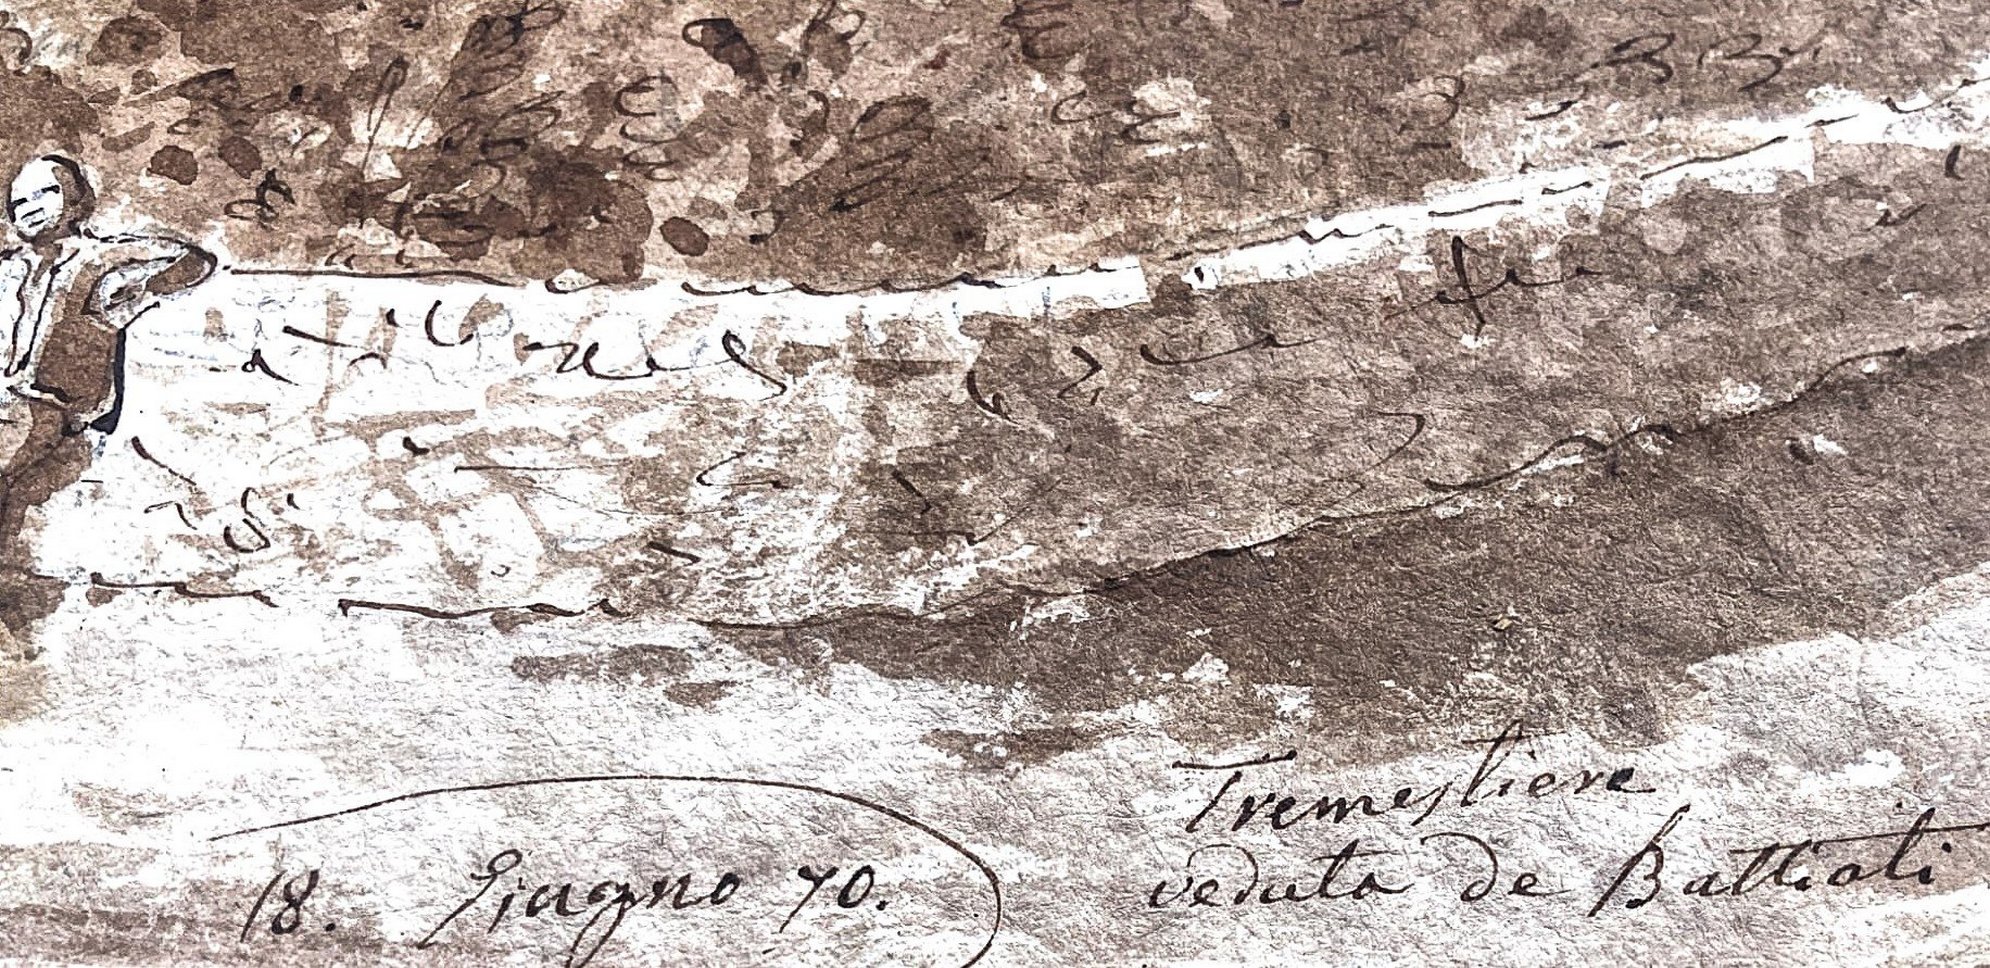 18. Giugno 70.
Tremestiere
veduta de Battiati